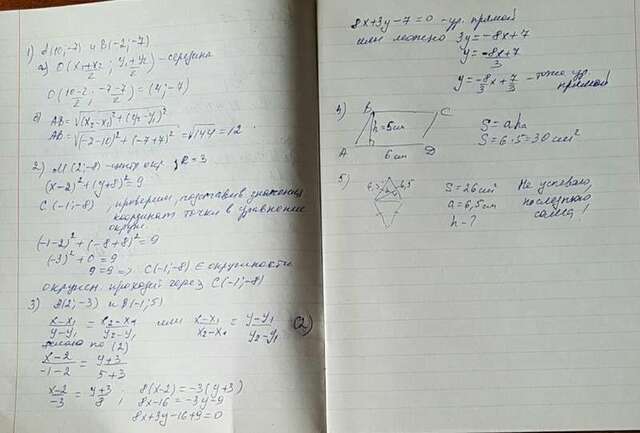 1) A(10;-7) и B(-2;-7)
а) O(x₁+x₂/2 ; y₁+y₂/2) - середина
O(10-2/2 ; -7-7/2) = (4;-7)
в) AB = √(x₂-x₁)²+(y₂-y₁)²
AB = √(-2-10)²+(-7+7)² = √144 = 12
2) M(2;-8) - центр окр. R=3
(x-2)²+(y+8)²=9
C(-1;-8), проверим, подставив значения
координат точки в уравнение
окруж.
(-1-2)²+(-8+8)²=9
(-3)²+0=9
9=9 => C(-1;-8) ∈ окружности
окружн. проходит через C(-1;-8)
3) A(2;-3) и B(-1;5)
x-x₁/y-y₁ = x₂-x₁/y₂-y₁ или x-x₁/x₂-x₁ = y-y₁/y₂-y₁ (2)
по (2)
x-2/-1-2 = y+3/5+3
x-2/-3 = y+3/8 ; 8(x-2)=-3(y+3)
8x-16=-3y-9
8x+3y-16+9=0
8x+3y-7=0 - ур. прямой
или можно 3y=-8x+7
y=-8x+7/3
y=-8/3x+7/3 - тоже ур.
прямой
4) B C
h=5см
A 6см D
S=aha
S=6·5=30см²
5) 6,5
S=26см²
a=6,5см
h-?
Не успеваю,
последнюю
сама!